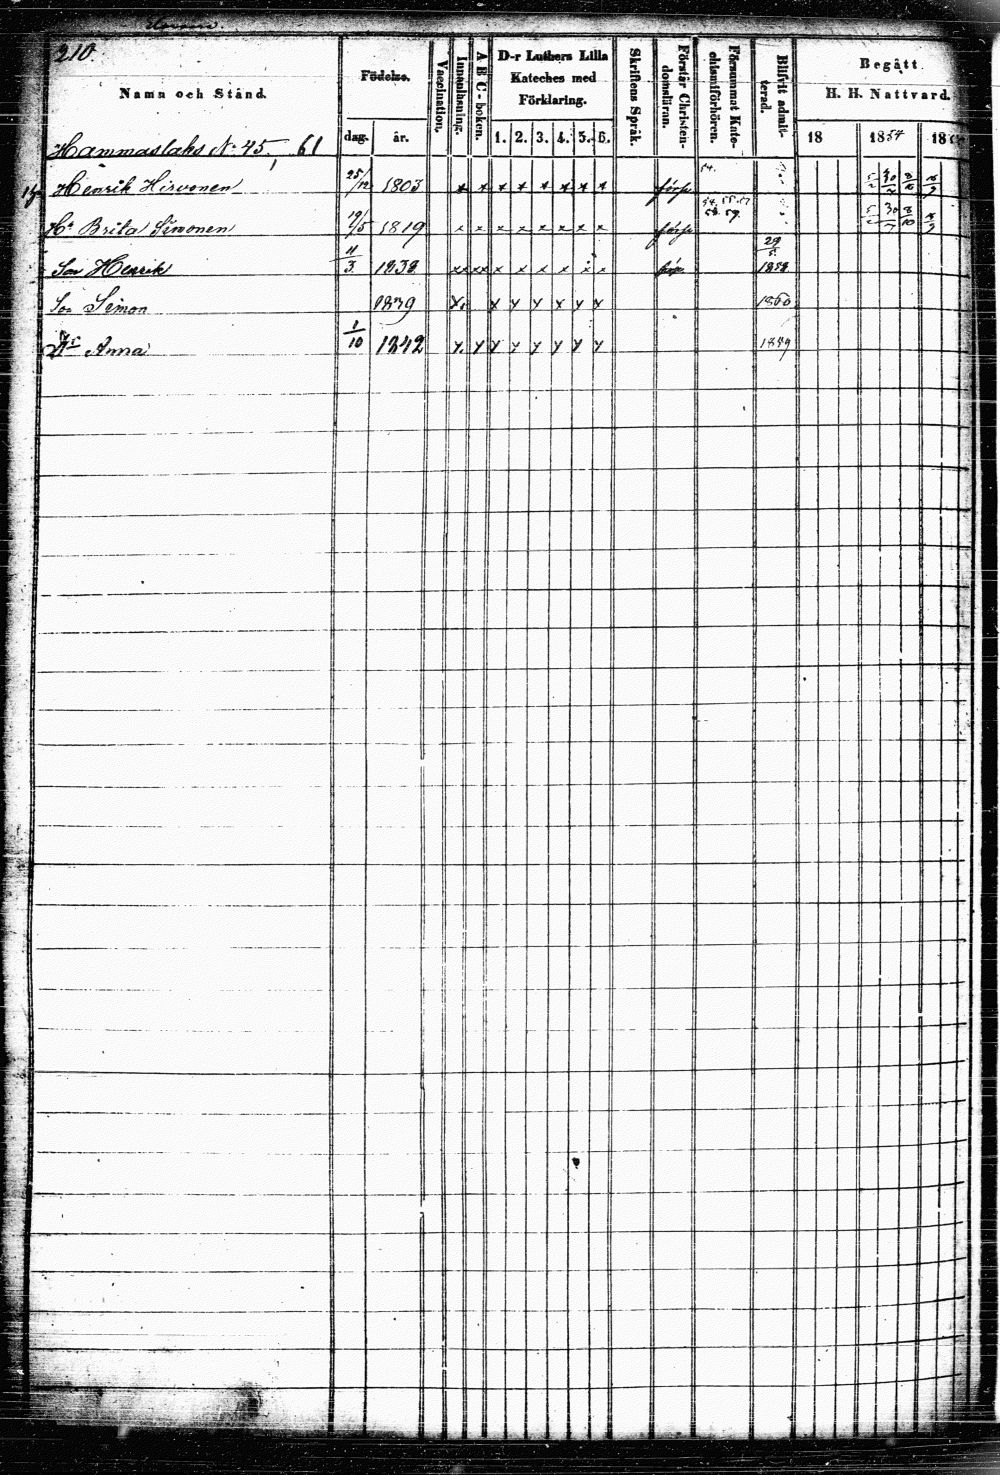 210.
Namn och Stånd.
Födelse.
dag.
år.
Vaccination.
Innanläsning.
A B C-boken.
D-r Luthers Lilla
Kateches med
Förklaring.
1. 2. 3. 4. 5. 6.
Skriftens Språk.
Förstår Christen-
domsläran.
Försummat Kate-
chismiförhören.
Blifvit admit-
terad.
Begått
H. H. Nattvard.
18 1854 18
Hammaslaks No 45, 61
Henrik Hirvonen 25/12 1803 x x x x x x x x förs 54. 5/2 30/7 8/10
Hu Brita Simonen 19/5 1819 x x x x x x x x förs 54. 55. 57 58. 59. 5/2 30/7 8/10
Son Henrik 4/3 1838 x x x x x x x x x x 29/5 1858
Son Simon 1839 x x x x x x x 1860
Dr Anna 1/10 1842 x x x x x x x x 1859